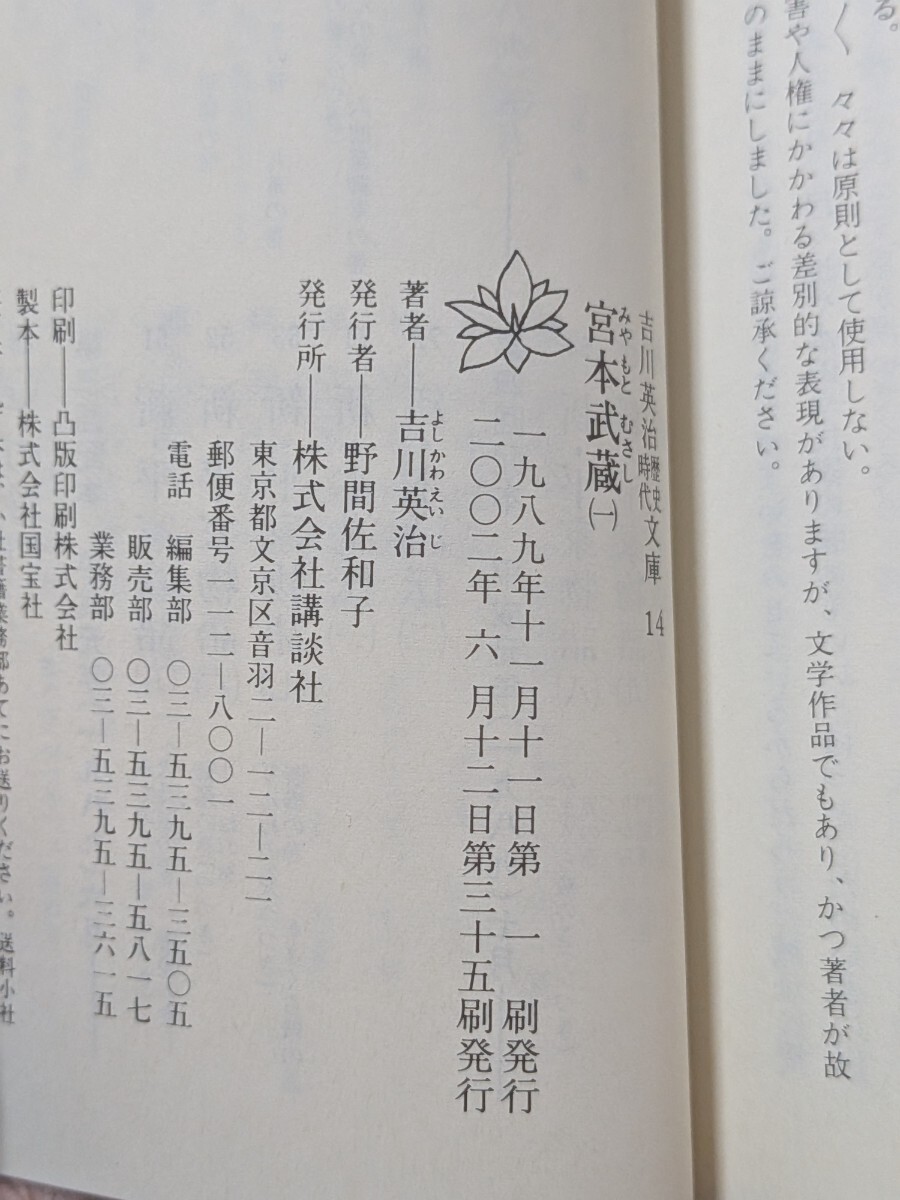 る。
々々は原則として使用しない。
害や人権にかかわる差別的な表現がありますが、文学作品でもあり、かつ著者が故
のままにしました。ご諒承ください。
吉川英治歴史時代文庫 14
宮本武蔵㈠
みやもと むさし
一九八九年十一月十一日第 一 刷発行
二〇〇二年 六 月十二日第三十五刷発行
著者――吉川英治
よしかわえいじ
発行者――野間佐和子
発行所――株式会社講談社
東京都文京区音羽二―一二―二一
郵便番号一一二―八〇〇一
電話 編集部 〇三―五三九五―三五〇五
販売部 〇三―五三九五―五八一七
業務部 〇三―五三九五―三六一五
印刷――凸版印刷株式会社
製本――株式会社国宝社
書籍業務部あてにお送りください。送料小社